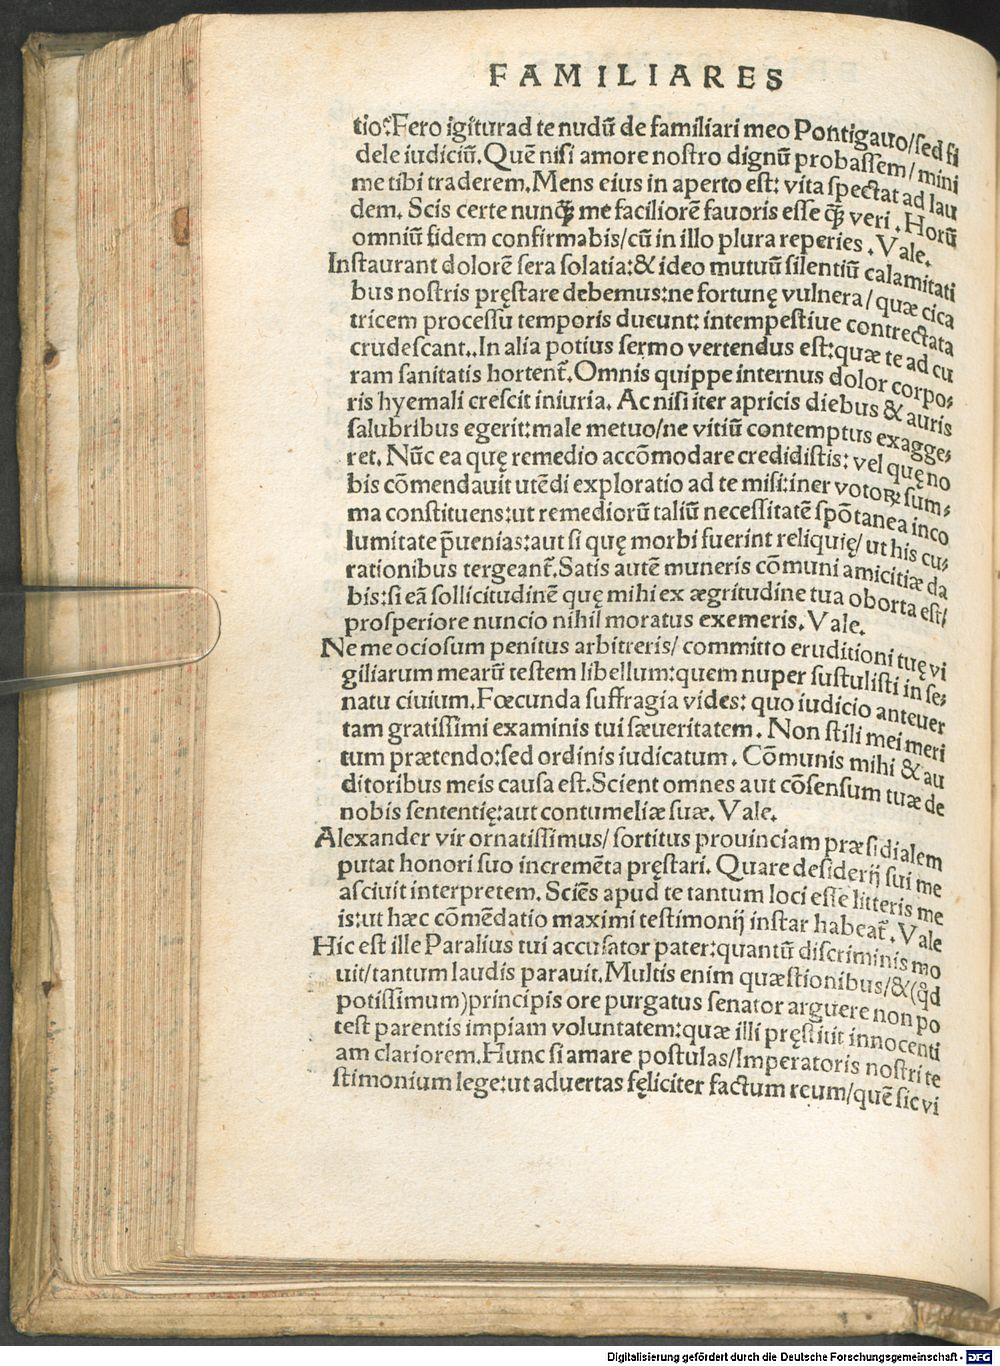 FAMILIARES
tio: Fero igitur ad te nudū de familiari meo Pontigauo/sed fi
dele iudiciū. Quē nisi amore nostro dignū probassem/mini
me tibi traderem. Mens eius in aperto est: vita spectat ad lau
dem. Scis certe nunꝗ̄ me faciliorē fauoris esse ꝗ̄ veri. Horū
omniū fidem confirmabis/cū in illo plura reperies. Vale.
Instaurant dolorē sera solatia: & ideo mutuū silentiū calamitati
bus nostris pręstare debemus: ne fortunę vulnera/quæ cica
tricem processu temporis ducunt: intempestiue contrectata
crudescant.. In alia potius sermo vertendus est: quæ te ad cu
ram sanitatis hortent᷑. Omnis quippe internus dolor corpo-
ris hyemali crescit iniuria. Ac nisi iter apricis diebus & auris
salubribus egerit: male metuo/ne vitiū contemptus exagge-
ret. Nūc ea quę remedio accōmodare credidistis: vel quę no
bis cōmendauit utēdi exploratio ad te misi: iner votoꝝ sum-
ma constituens: ut remediorū taliū necessitatē spōtanea inco
lumitate p̄uenias: aut si quę morbi fuerint reliquię/ ut his cu-
rationibus tergeant᷑. Satis autē muneris cōmuni amicitiæ da
bis: si eā sollicitudinē quę mihi ex ægritudine tua oborta est/
prosperiore nuncio nihil moratus exemeris. Vale.
Ne me ociosum penitus arbitreris/ committo eruditioni tuę vi
giliarum mearū testem libellum: quem nuper sustulisti in se-
natu ciuium. Fœcunda suffragia vides: quo iudicio anteuer
tam gratissimi examinis tui sæueritatem. Non stili mei meri
tum prætendo: sed ordinis iudicatum. Cōmunis mihi & au
ditoribus meis causa est. Scient omnes aut cōsensum tuæ de
nobis sententię: aut contumeliæ suæ. Vale.
Alexander vir ornatissimus/ sortitus prouinciam præsidialem
putat honori suo incremēta pręstari. Quare desiderij sui me
asciuit interpretem. Sciēs apud te tantum loci esse litteris me
is: ut hæc cōmēdatio maximi testimonij instar habeat᷑. Vale
Hic est ille Paralius tui accusator pater: quantū discriminis mo
uit/tantum laudis parauit. Multis enim quæstionibus/&(qd̊
potissimum) principis ore purgatus senator arguere non po
test parentis impiam voluntatem: quæ illi pręstitit innocenti
am clariorem. Hunc si amare postulas/Imperatoris nostri te
stimonium lege: ut aduertas fęliciter factum reum/quē sic vi
Digitalisierung gefördert durch die Deutsche Forschungsgemeinschaft - DFG